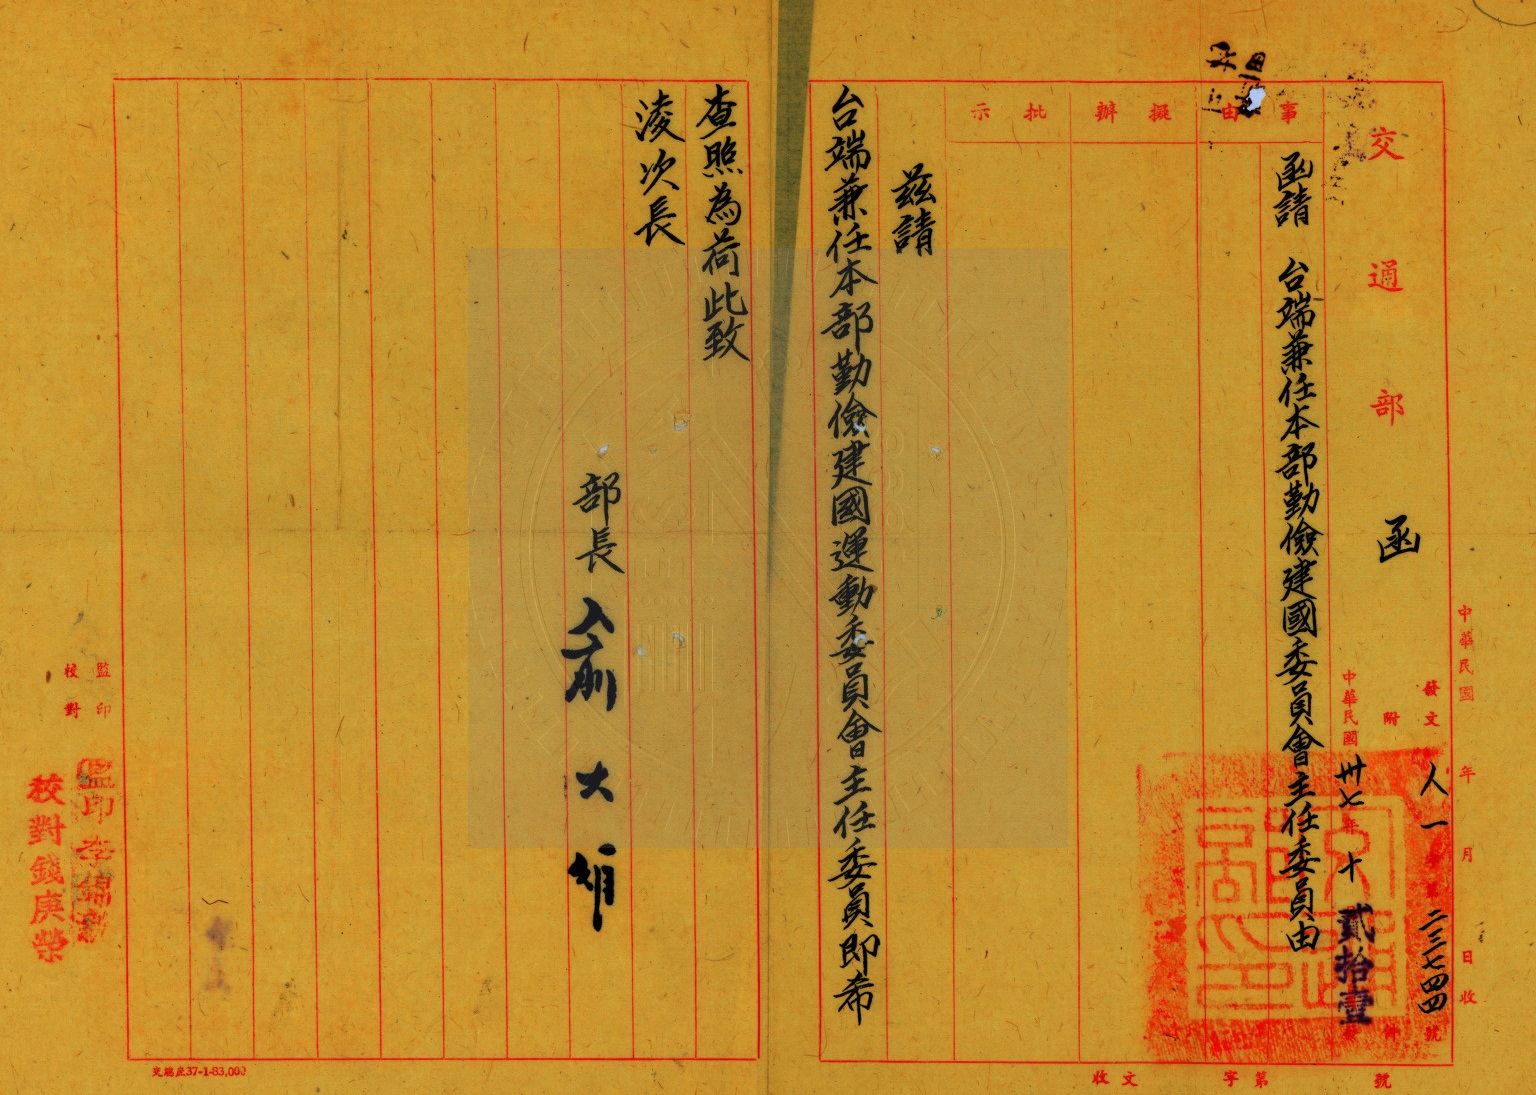 中華民國 年 月 日收
發文 人一字第二三七四四號
附 件
交通部 函
中華民國卅七年十 貳拾壹
事由
擬辦
批示
函請 台端兼任本部勤儉建國委員會主任委員由
茲請
台端兼任本部勤儉建國運動委員會主任委員即希
查照為荷此致
淩次長
部長 俞大維
監印
校對
監印李錦
校對錢庚榮
收文 字第 號
37-1-83,000